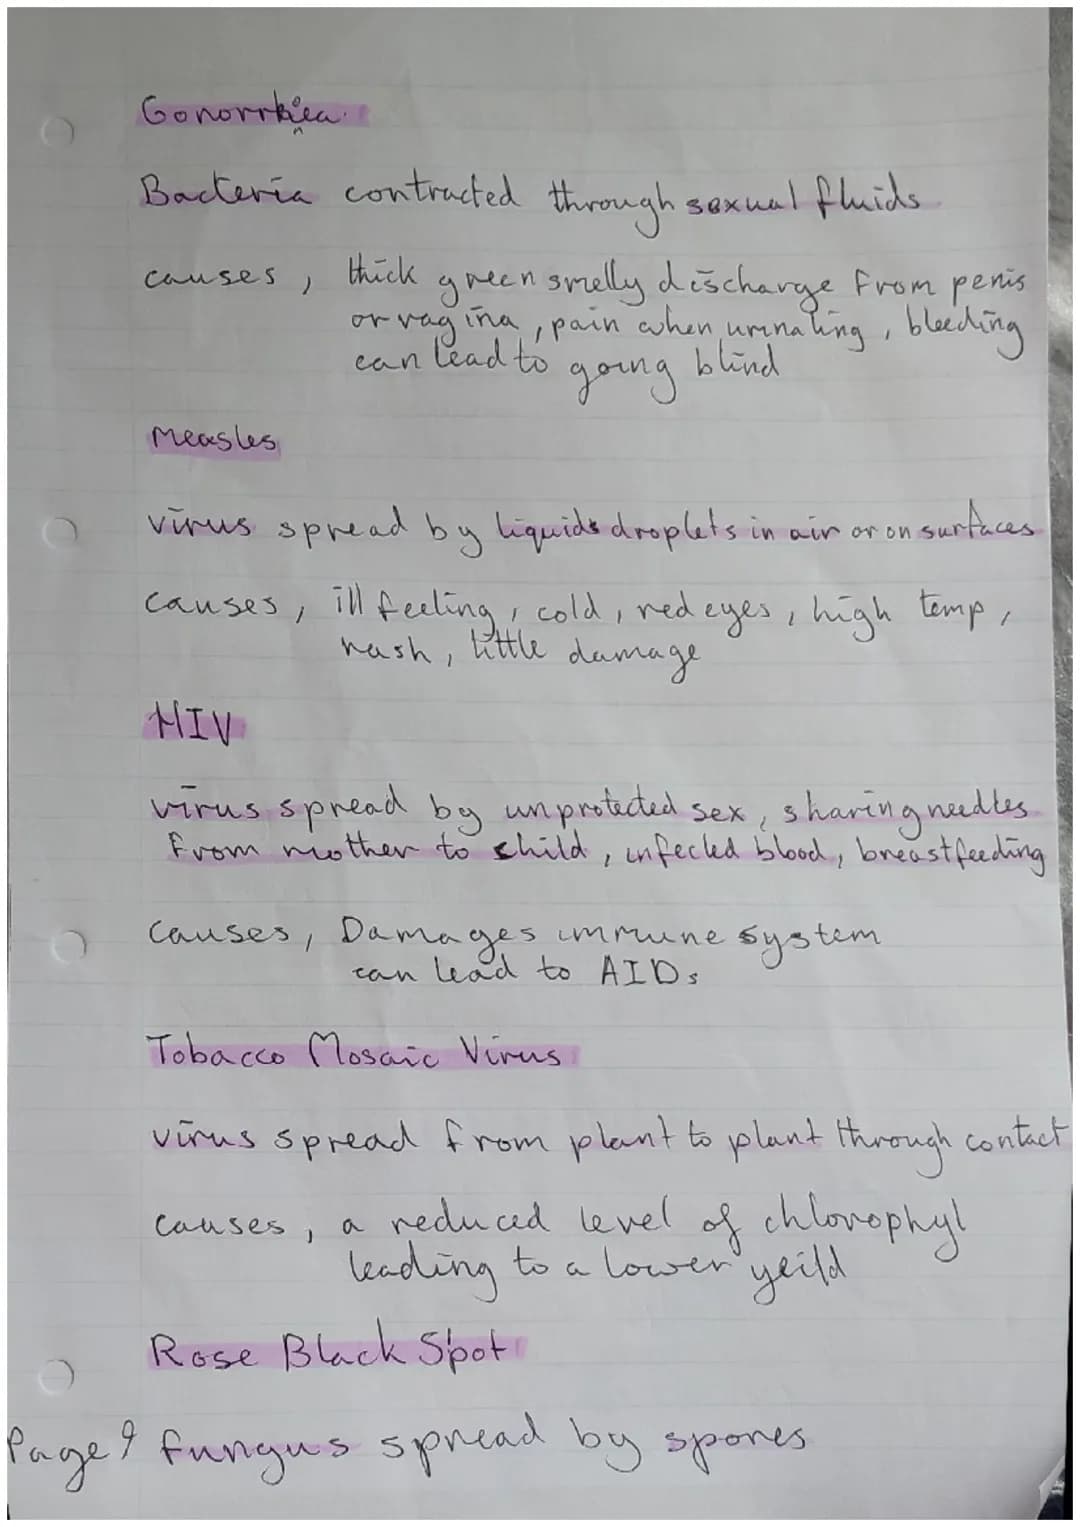 Gonorrhiea
Bacteria contracted through sexual fluids
causes, thick green smelly discharge from penis
or vagina, pain when urinating, bleeding
can lead to going blind
Measles
virus spread by liquids droplets in air or on surfaces
causes, ill feeling, cold, red eyes, high temp,
rash, little damage
HIV
virus spread by unprotected sex, sharing needles
from mother to child, infected blood, breastfeeding
causes, Damages immune system
can lead to AIDs
Tobacco Mosaic Virus
virus spread from plant to plant through contact
causes, a reduced level of chlorophyl
leading to a lower yeild
Rose Black Spot
Page 9 fungus spread by spores